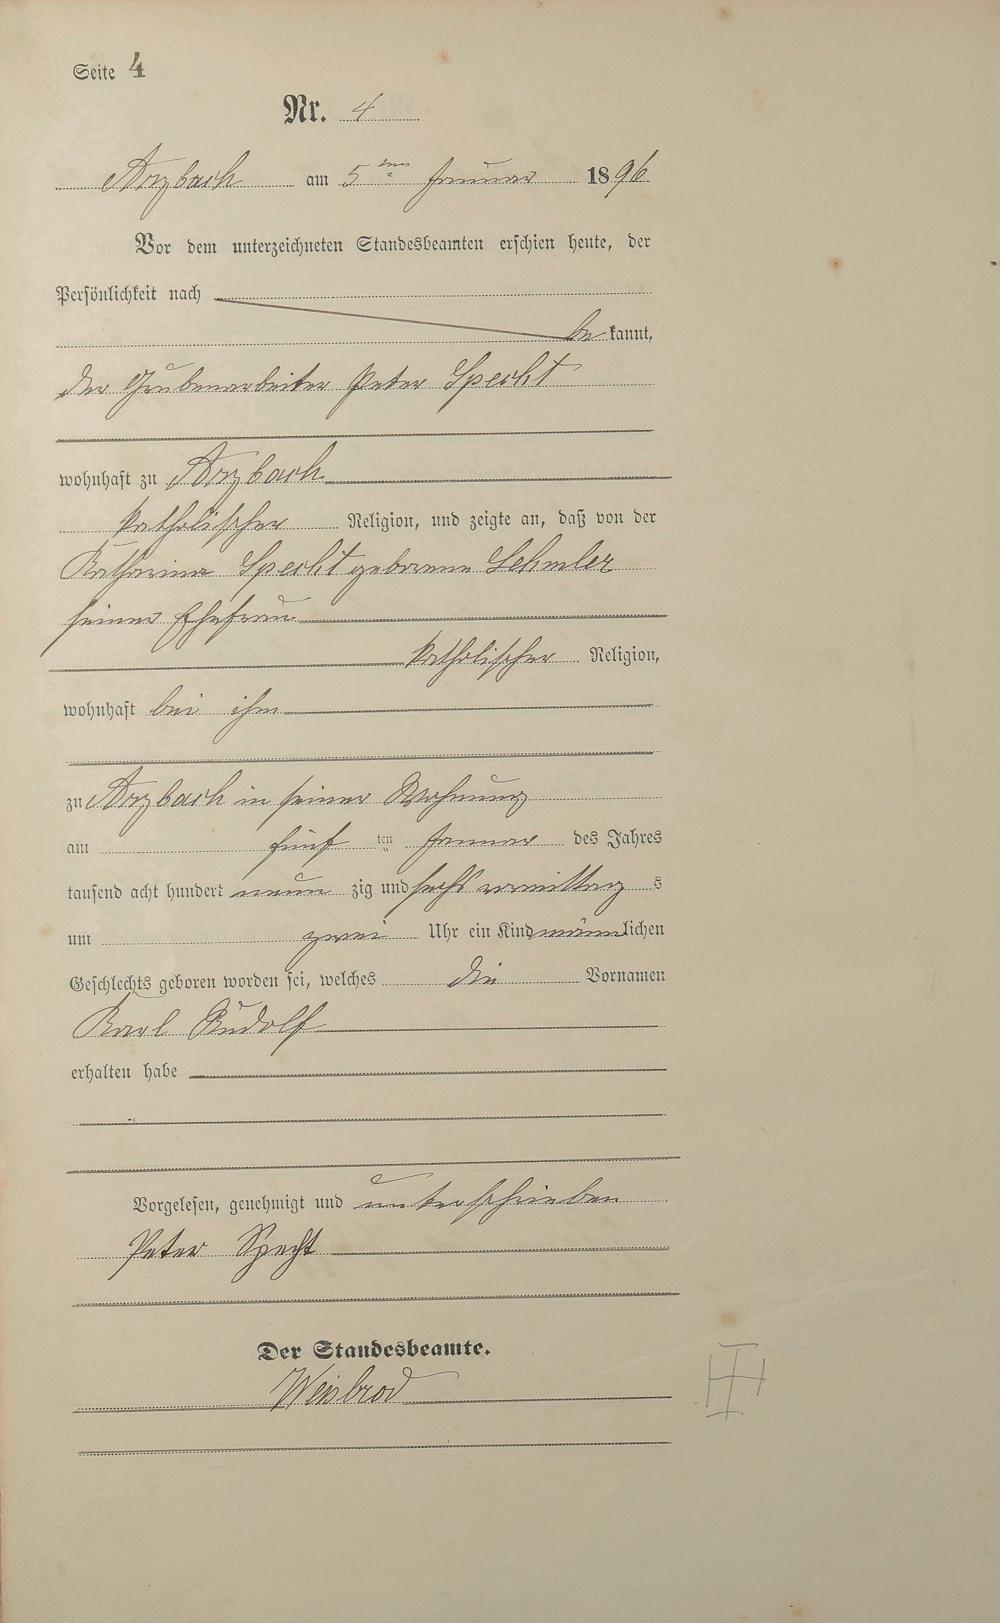 Seite 4
Nr. 4
Arzbach am 5ten Januar 1896
Vor dem unterzeichneten Standesbeamten erschien heute, der
Persönlichkeit nach
bekannt,
der Grubenarbeiter Peter Specht
wohnhaft zu Arzbach
katholischer Religion, und zeigte an, daß von der
Katharina Specht geborene Lehmler
seiner Ehefrau
katholischer Religion,
wohnhaft bei ihm
zu Arzbach in seiner Wohnung
am fünf ten Januar des Jahres
tausend acht hundert neun zig und sechs vormittag s
um zwei Uhr ein Kind männlichen
Geschlechts geboren worden sei, welches die Vornamen
Karl Rudolf
erhalten habe
Vorgelesen, genehmigt und unterschrieben
Peter Specht
Der Standesbeamte.
Weisbrod